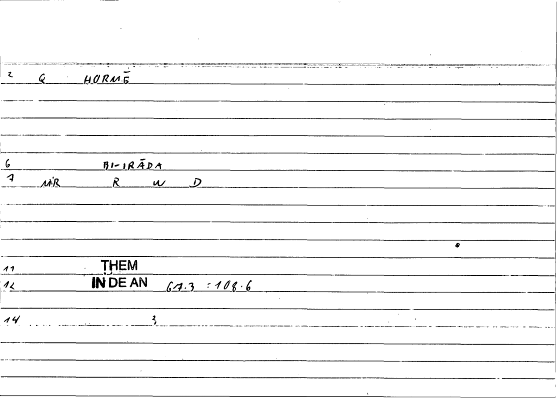 2 G HORMĒ
6 BI-IRĀDA
7 NR R W D
11 THEM
12 IN DE AN 67.3 = 108.6
14 3,